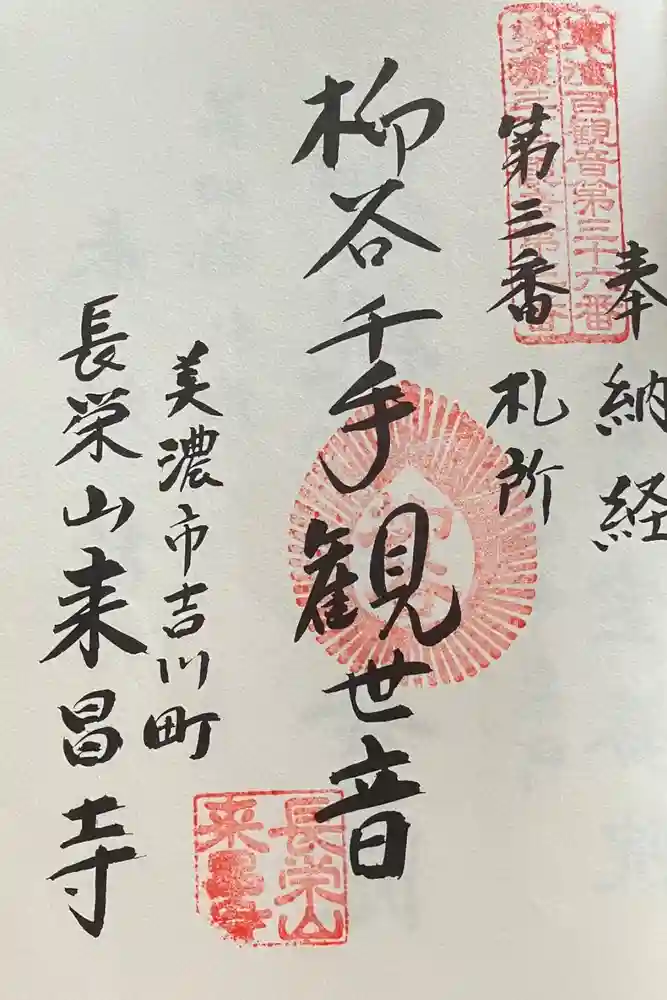 奉納経
東海百観音第三十六番
第三番 札所
柳谷千手観世音
美濃市吉川町
長栄山来昌寺
長栄山
来昌寺